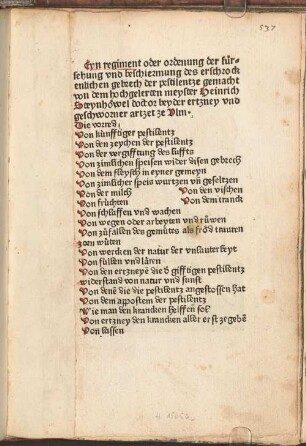 537
Eyn regiment oder ordenung der für-
sehung vnd beschirmung des erschrock
enlichen gebrech der pestilentze gemacht
von dem hochgelerten meyster Heinrich
Steynhöwel doctor beyder ertzney vnd
geschworner artzet ze Ulm.
Die vorred.
Von künfftiger pestilentz
Von den zeychen der pestilentz
Von der vergifftung des luffts
Von zimlichen speisen wider disen gebrech
Von dem fleysch in eyner gemeyn
Von zimlicher speis wurtzen vñ geseltzen
Von der milch Von den vischen
Von früchten Von dem tranck
Von schlaffen vnd wachen
Von wegen oder arbeyten vnd růwen
Von zůfallen des gemütes als fröd trauren
zorn wüten
Von wercken der natur der vnlauterkeyt
Von füllen vnd lären
Von den ertzneyẽ die d̕ gifftigen pestilentz
widerstand von natur vnd kunst
Von denẽ die die pestilentz angestossen hat
Von dem appostem der pestilentz
Wie man den krancken heissen sol
Von ertzney den krancken aller erst ze gebẽ
Von lassen